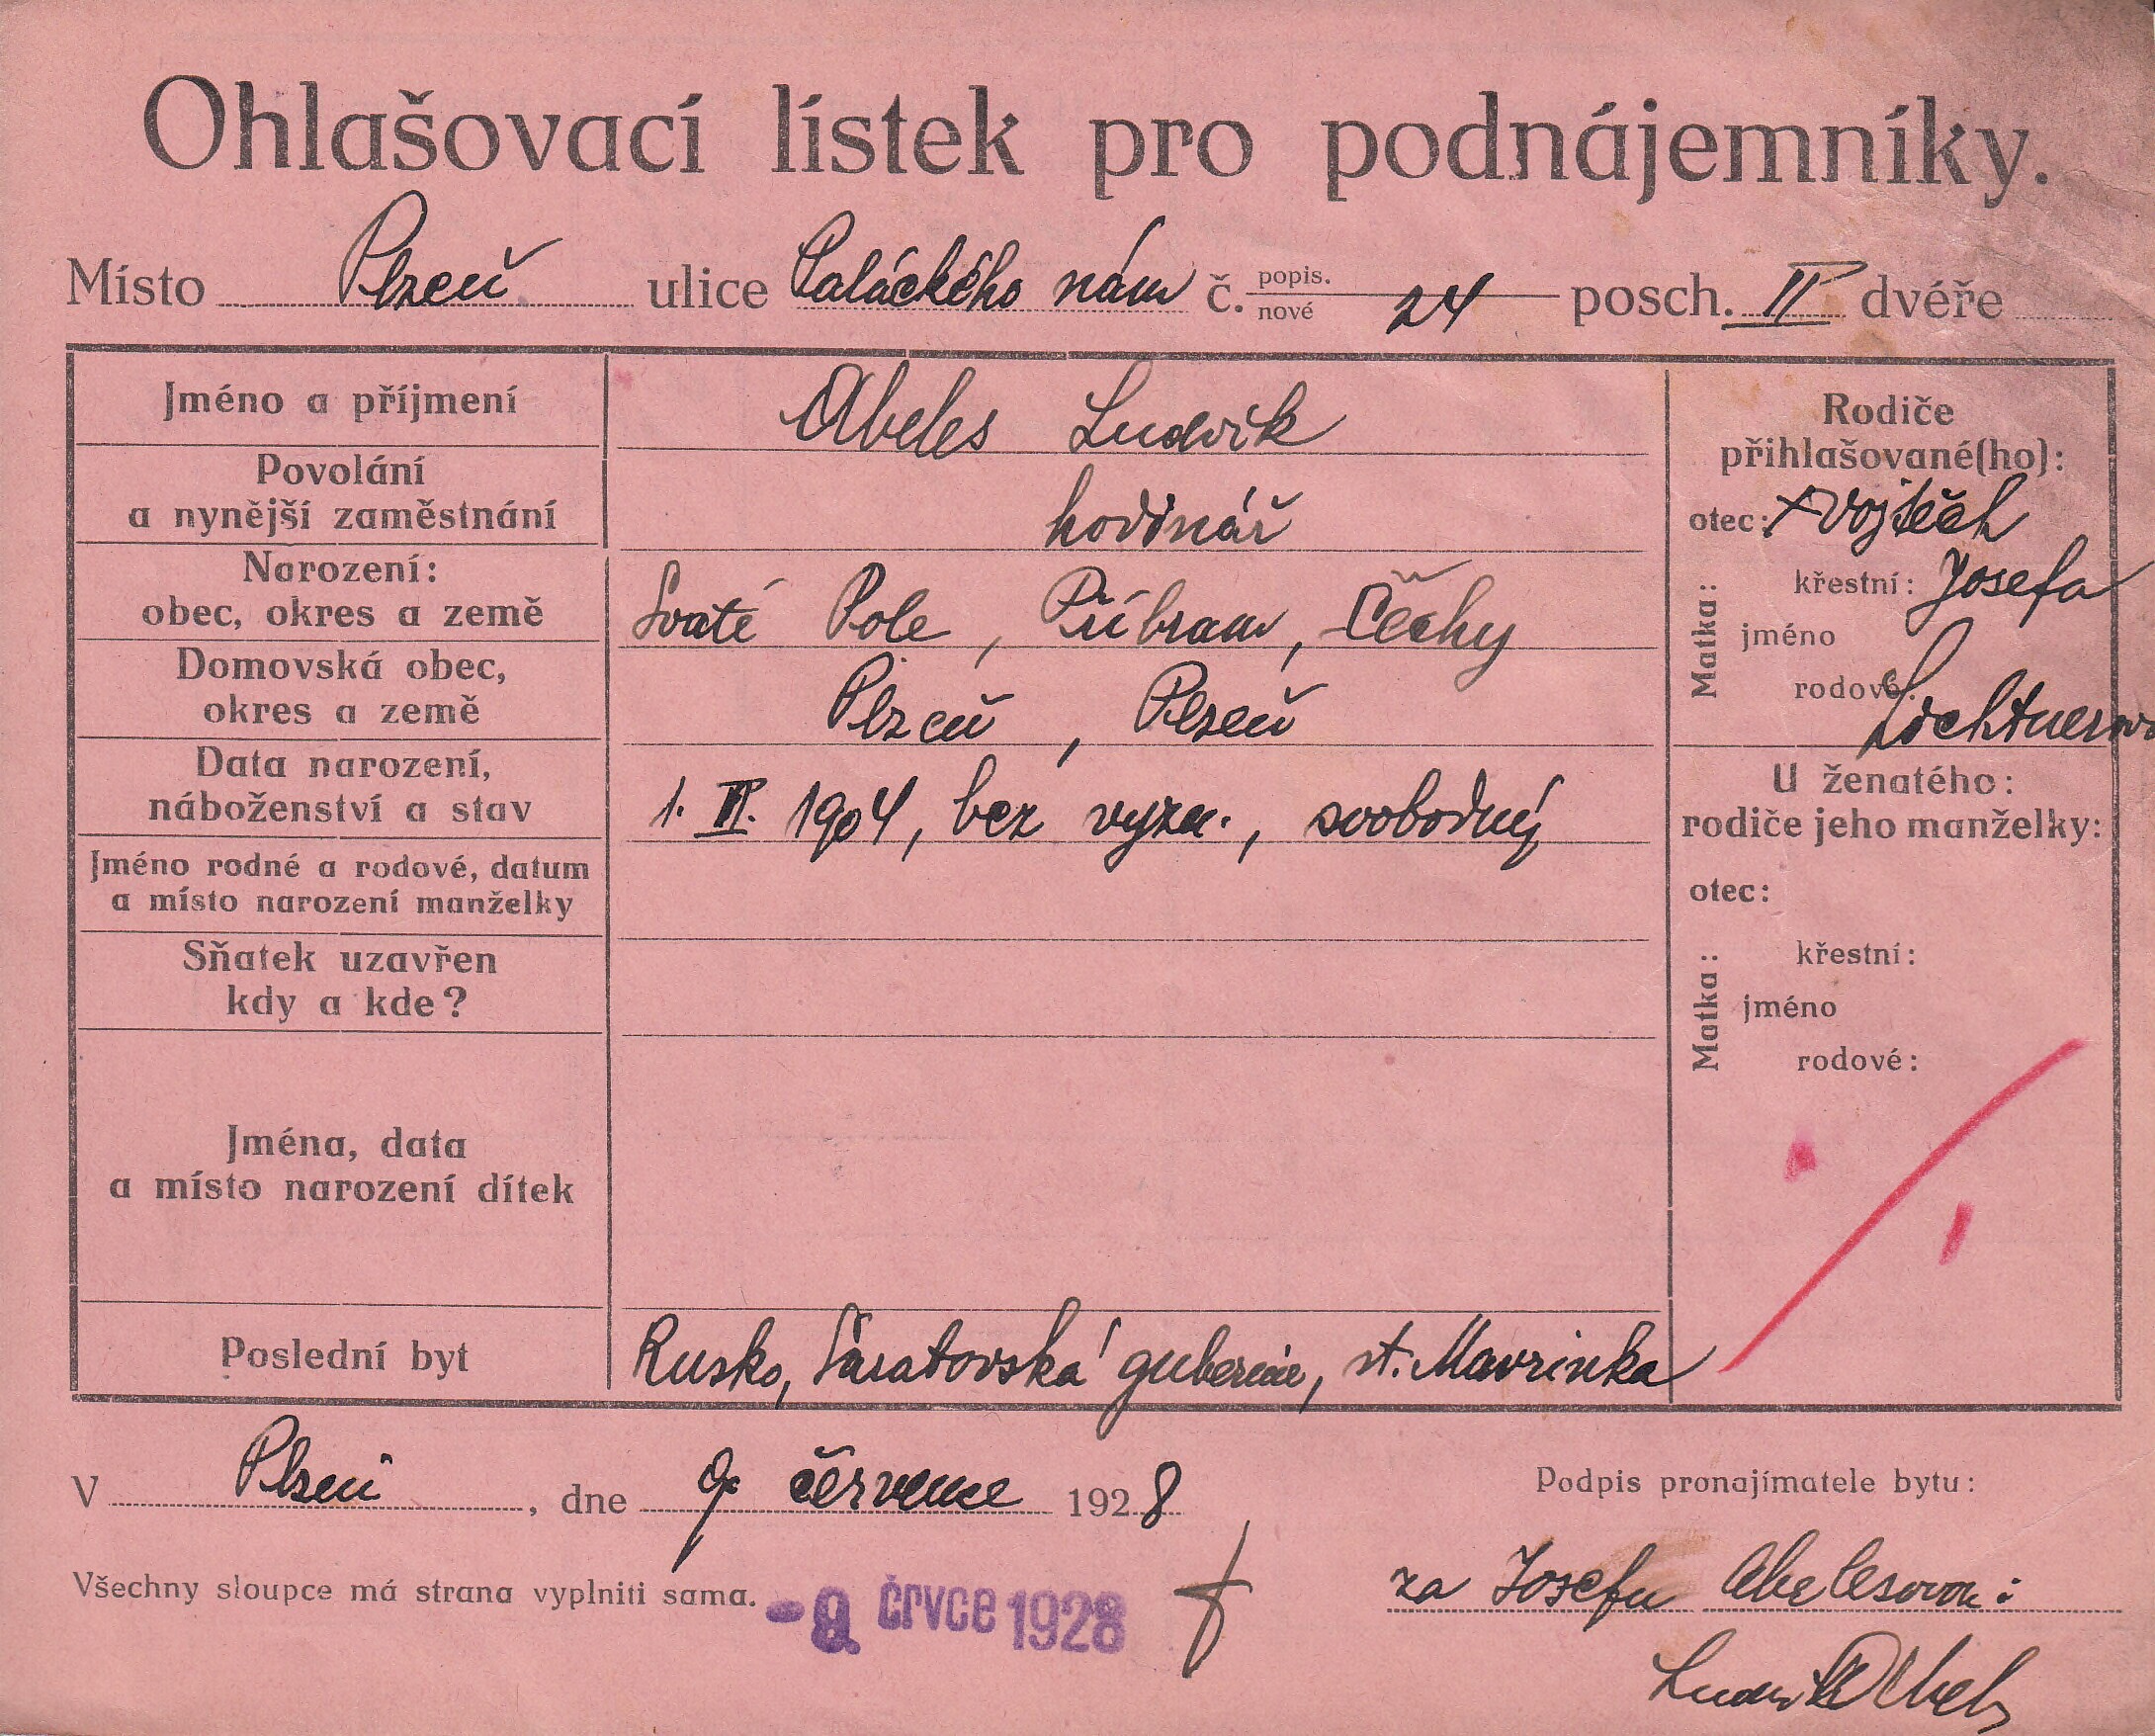 Ohlašovací lístek pro podnájemníky.
Místo Plzeň ulice Paláckého nám č. popis. nové 24 posch. II dvéře
Jméno a příjmení Abeles Ludvík
Povolání
a nynější zaměstnání hodinář
Narození:
obec, okres a země Svaté Pole, Příbram, Čechy
Domovská obec,
okres a země Plzeň, Plzeň
Data narození,
náboženství a stav 1. II. 1904, bez vyzn., svobodný
Jméno rodné a rodové, datum
a místo narození manželky
Sňatek uzavřen
kdy a kde?
Jména, data
a místo narození dítek
Poslední byt Rusko, Saratovská gubernie, st. Mavrinka
Rodiče
přihlašované(ho):
otec: Vojtěch
Matka:
křestní: Josefa
jméno
rodové: Lichtnerová
U ženatého:
rodiče jeho manželky:
otec:
Matka:
křestní:
jméno
rodové:
V Plzni, dne 9. července 1928
Podpis pronajímatele bytu:
Všechny sloupce má strana vyplniti sama.
-9. črvce 1928
za Josefu Abelesovou:
Ludvík Abeles